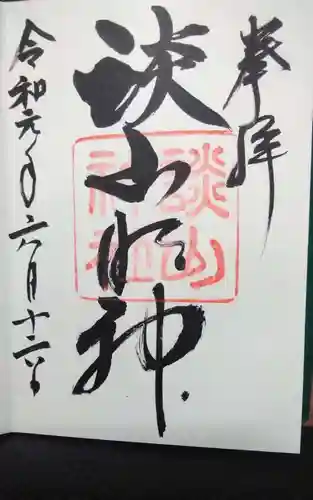 奉拝
談山明神
談山神社
令和元年六月十二日